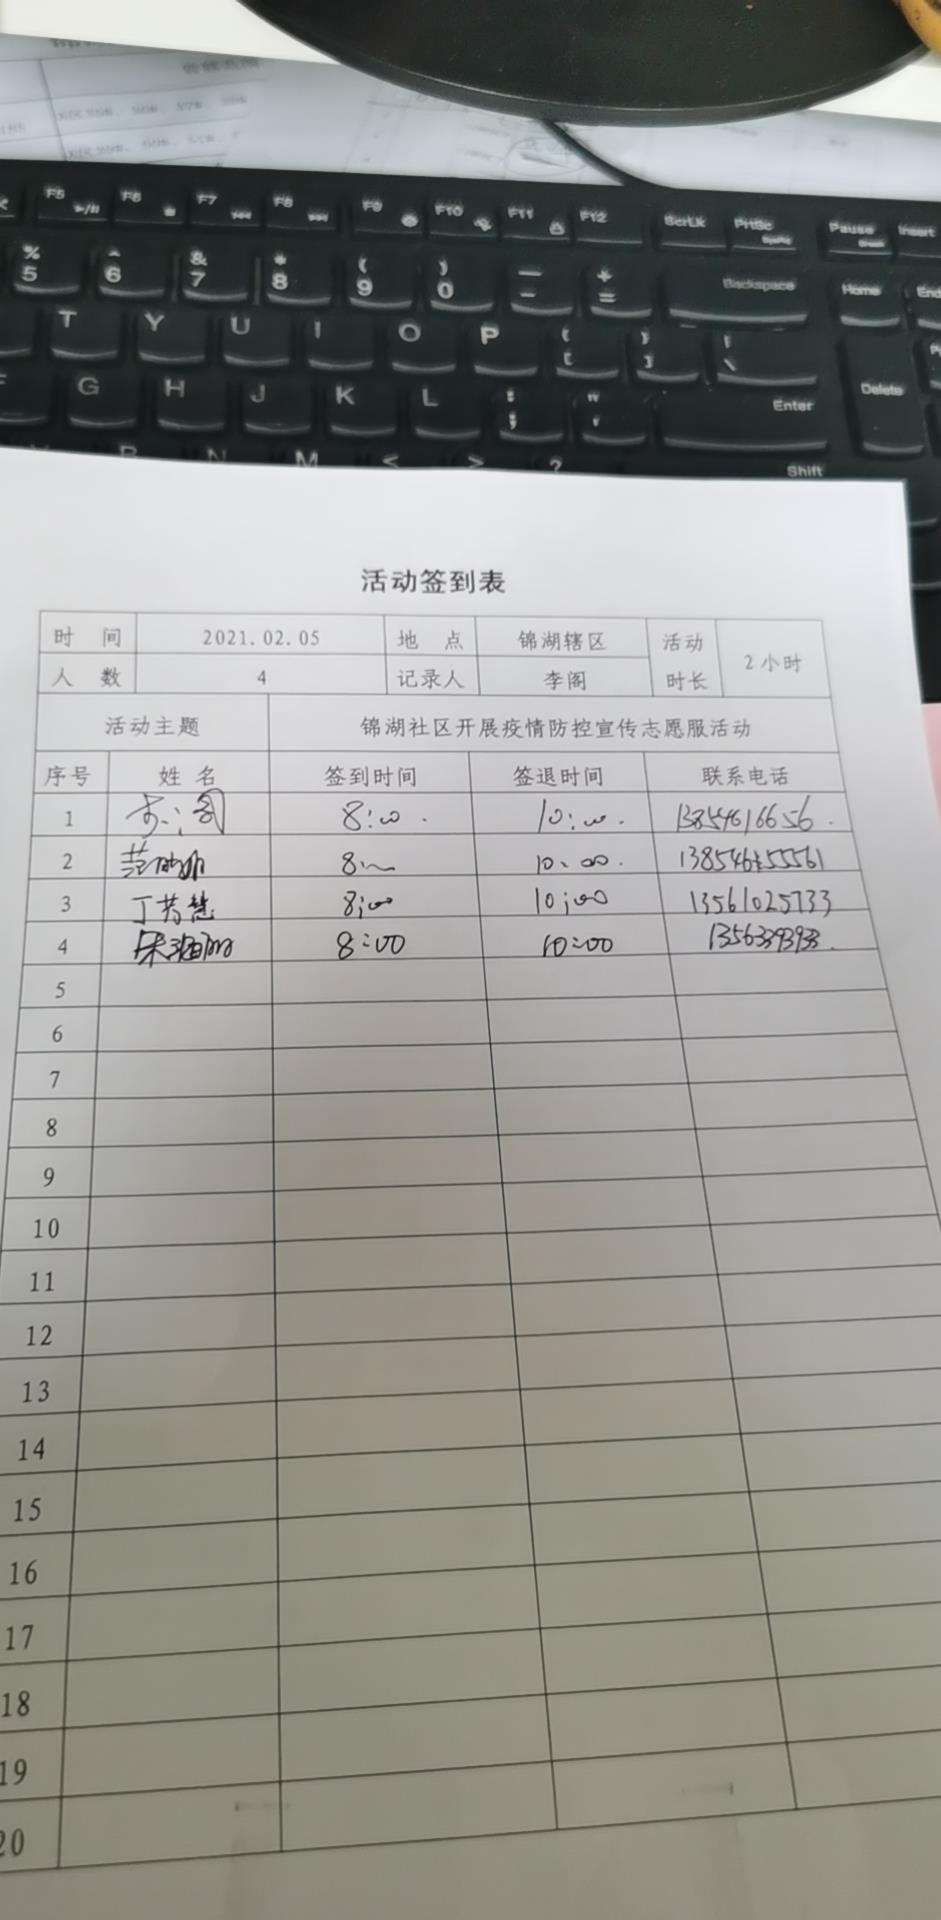 F5 F6 F7 F8 F9 F10 F11 F12 ScrLk PrtSc Pause Insert
SysRq Break
% ^ & * ( ) — +
5 6 7 8 9 0 - = Backspace Home End
T Y U I O P { [ } ] | \ Delete
G H J K L : ; " ' Enter
B N M < > ? Shift
活动签到表
时 间 2021.02.05 地 点 锦湖辖区 活动时长 2小时
人 数 4 记录人 李阁
活动主题 锦湖社区开展疫情防控宣传志愿服活动
序号 姓 名 签到时间 签退时间 联系电话
1 李阁 8:00 10:00 13854616656
2 8:00 10:00
3 8:00 10:00 13561025733
4 8:00 10:00
5
6
7
8
9
10
11
12
13
14
15
16
17
18
19
20